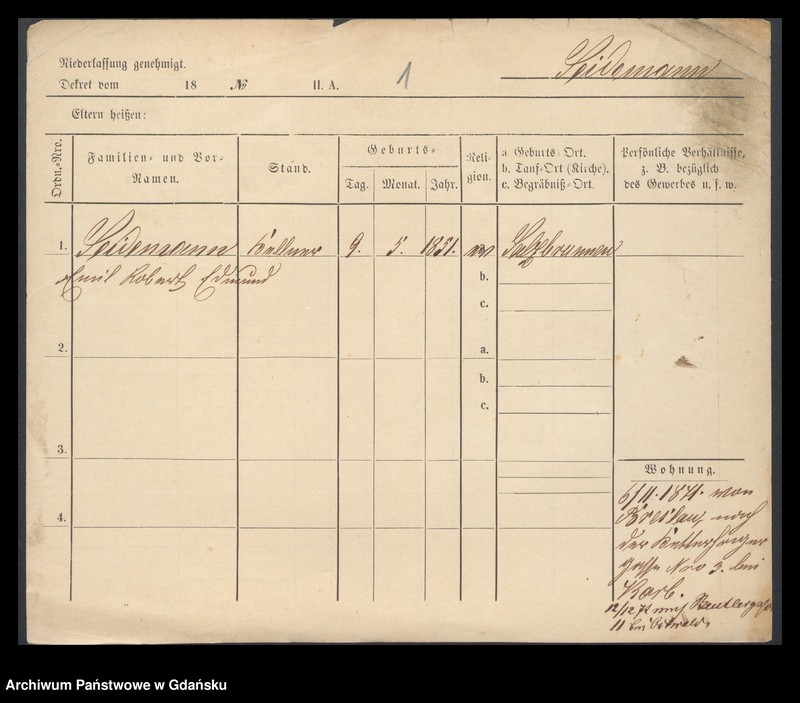 Niederlassung genehmigt.
Dekret vom 18 № II. A. 1 Seidemann
Eltern heißen:
Ordn.-Nro.
Familien- und Vor-
Namen.
Stand.
Geburts-
Tag. Monat. Jahr.
Reli-
gion.
a Geburts-Ort.
b. Tauf-Ort (Kirche).
c. Begräbniß-Ort.
Persönliche Verhältnisse,
z. B. bezüglich
des Gewerbes u. s. w.
1. Seidemann Kellner 9. 5. 1851. ev Salzbrunnen
Emil Robert Edmund
b.
c.
2.
a.
b.
c.
3.
Wohnung.
6/11. 1871. von
Breslau, nach
der Ketterhager
gasse Nro 3. bei
Korb.
4.
12/12 71 nach Beutlergasse
11 bei